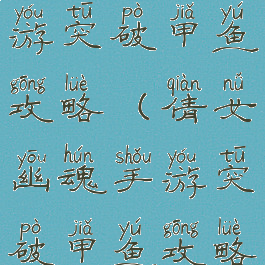 yóu tū pò jiǎ yú
游突破甲鱼
gōng lüè qiàn nǚ
攻略(倩女
yōu hún shǒu yóu tū
幽魂手游突
pò jiǎ yú gōng lüè
破甲鱼攻略